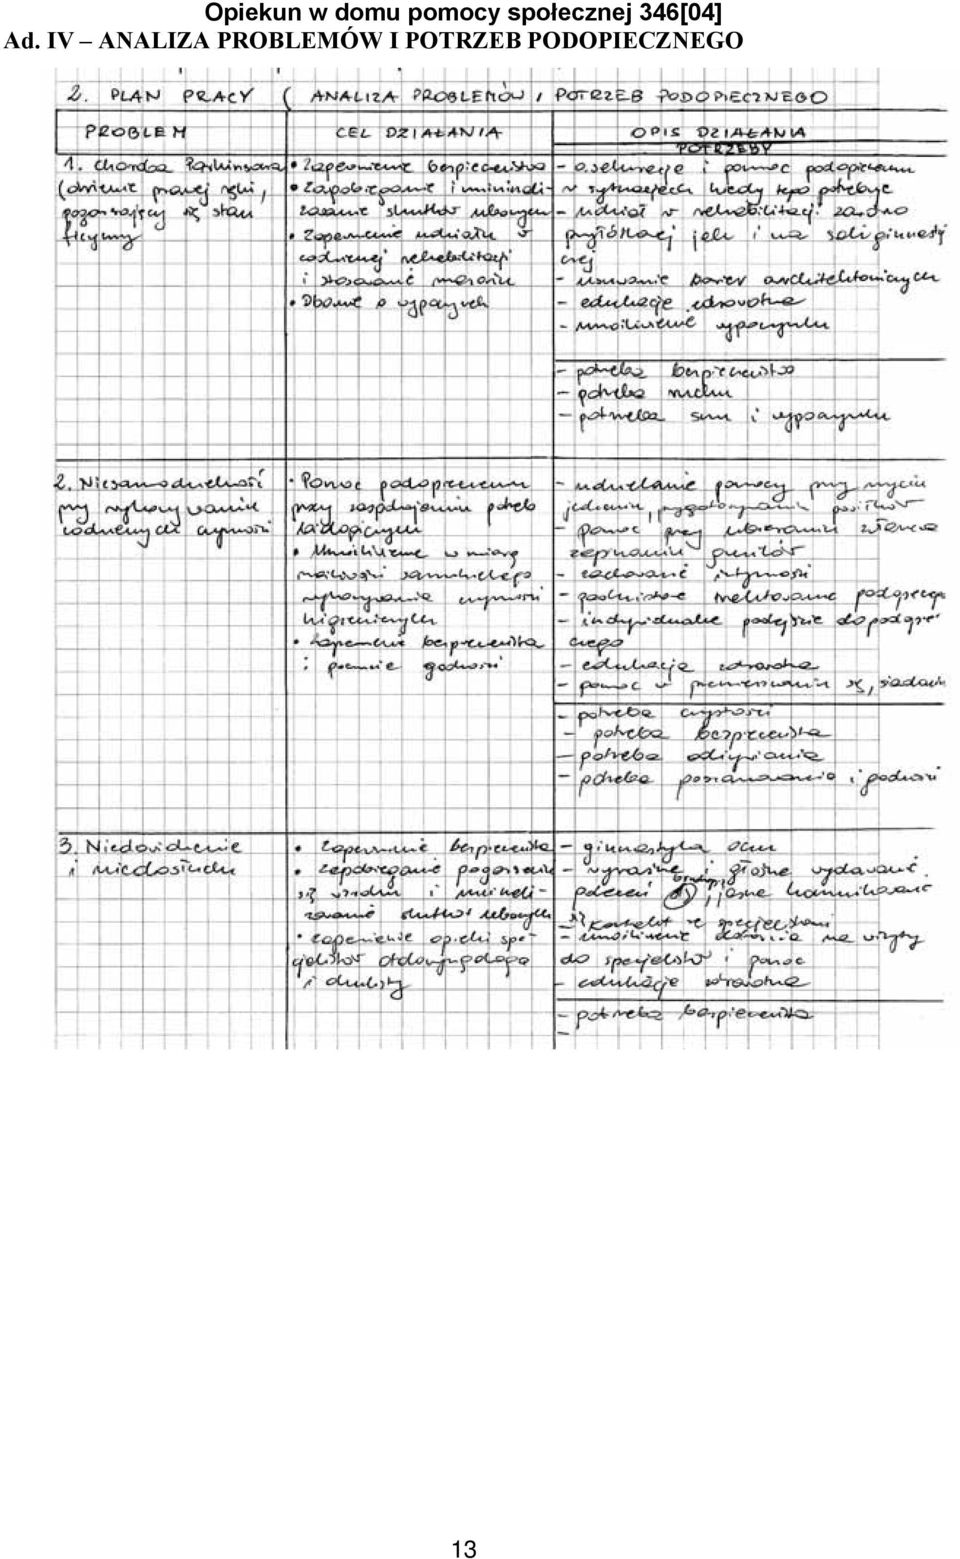 Opiekun w domu pomocy społecznej 346[04]
Ad. IV – ANALIZA PROBLEMÓW I POTRZEB PODOPIECZNEGO
2. PLAN PRACY ( ANALIZA PROBLEMÓW I POTRZEB PODOPIECZNEGO
PROBLEM
CEL DZIAŁANIA
OPIS DZIAŁANIA
POTRZEBY
1. Choroba Parkinsona
(drżenie prawej ręki,
pogarszający się stan
fizyczny
• Zapewnienie bezpieczeństwa
• Zapobieganie i minimali-
zowanie skutków ubocznych
• Zapewnienie udziału w
codziennej rehabilitacji
i stosowanie masażu
• Dbanie o wypoczynek
- asekuracja i pomoc podopiecznemu
w sytuacjach kiedy tego potrzebuje
- udział w rehabilitacji zarówno
przyłóżkowej jak i na sali gimnasty
cznej
- usuwanie barier architektonicznych
- edukacja zdrowotna
- umożliwienie wypoczynku
- potrzeba bezpieczeństwa
- potrzeba ruchu
- potrzeba snu i wypoczynku
2. Niesamodzielność
przy wykonywaniu
codziennych czynności
• Pomoc podopiecznemu
przy zaspokajaniu potrzeb
• Umożliwienie w miarę
możliwości samodzielnego
wykonywania czynności
higienicznych
• Zapewnienie bezpieczeństwa
i poczucie godności
- udzielanie pomocy przy myciu
jedzeniu, przygotowywaniu posiłków
- pomoc przy ubieraniu zwłaszcza
zapinaniu guzików
- zachowanie intymności
- podmiotowe traktowanie podopiecz
- indywidualne podejście do podopie
cznego
- edukacja zdrowotna
- pomoc w przemieszczaniu się, siadaniu
- potrzeba czystości
- potrzeba bezpieczeństwa
- potrzeba odżywiania
- potrzeba poszanowania i godności
3. Niedowidzenie
i niedosłuch
• zapewnienie bezpieczeństwa
• zapobieganie pogorszeniu
się wzroku i minimali-
zowanie skutków ubocznych
• zapewnienie opieki spe-
cjalistów otolaryngologa
i okulisty
- gimnastyka oczu
- wyraźne i głośne wydawanie
poleceń, jasne komunikowanie
- kontakt ze specjalistami
- umożliwienie dotarcia na wizyty
do specjalistów i pomoc
- edukacja zdrowotna
- potrzeba bezpieczeństwa
-
13